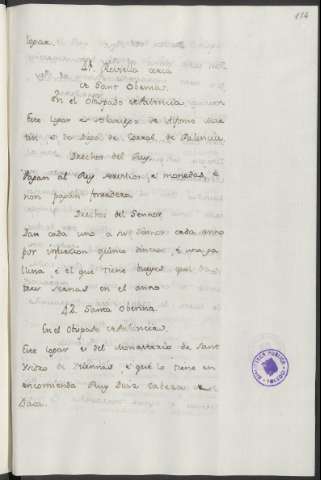 114
logar.
21 Revilla cerca
de Sant Obenia.
En el Obispado de Palencia
Este logar es Solariego de Alfonso Mar
tin e de Diego de Corral, de Palencia.
Drechos del Rey.
Pagan al Rey servicios e monedas, e
non pagan fonsadera
Drechos del Sennor
Dan cada uno a su Sennor cada anno
por infurcion quince dineros e una ga
llina, e el que tiene bueyes quel
tres sernas en el anno
22. Santa Obenna.
En el Obispado de Palencia.
Este logar es del Monasterio de Sant
Isidro de Duennas, e quel lo tiene en
encomienda Ruy Diaz Cabeza de
Baca.
BIBLIOTECA PUBLICA
TOLEDO